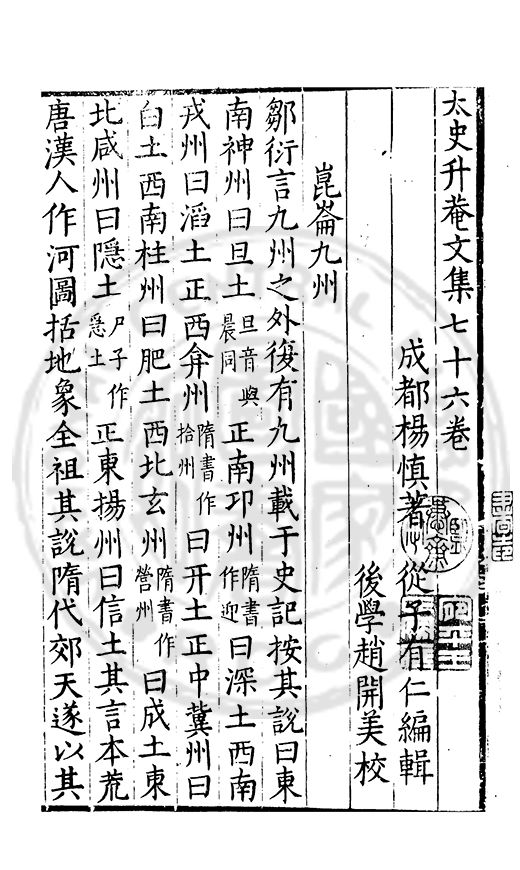 太史升菴文集七十六卷
成都楊慎著 從子有仁編輯
後學趙開美校
崑崙九州
鄒衍言九州之外復有九州載于史記按其說曰東
南神州曰旦土旦音與晨同正南卬州隋書作迎曰深土西南
戎州曰滔土正西弇州隋書作拾州曰开土正中冀州曰
白土西南柱州曰肥土西北玄州隋書作營州曰成土東
北咸州曰隱土尸子作㥯土正東揚州曰信土其言本荒
唐漢人作河圖括地象全祖其說隋代郊天遂以其